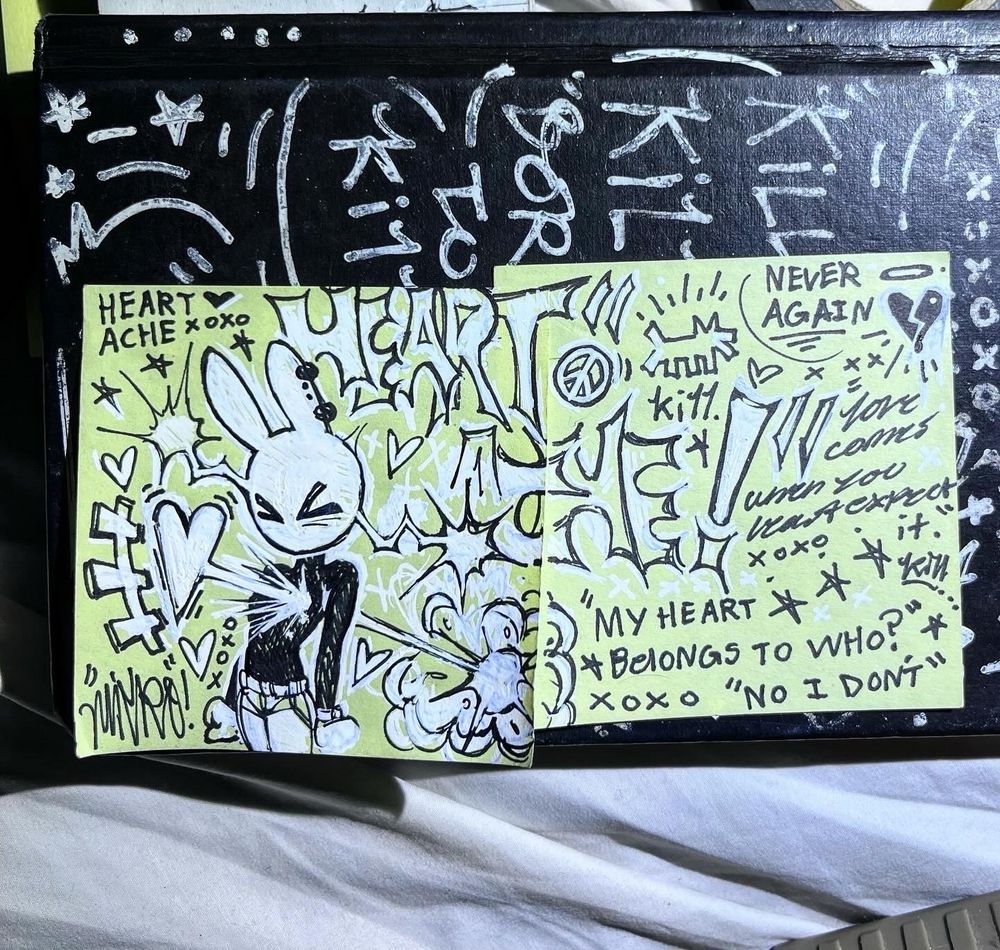 KiLL
KiL
BOR
to
Kit
HEART
ACHE xoxo
HEART
YE!
NEVER
AGAIN
kill.
"love
comes
when you
least expect
it."
xoxo
kill
xoxo
"MY HEART
BELONGS TO WHO?"
xoxo "NO I DON'T"